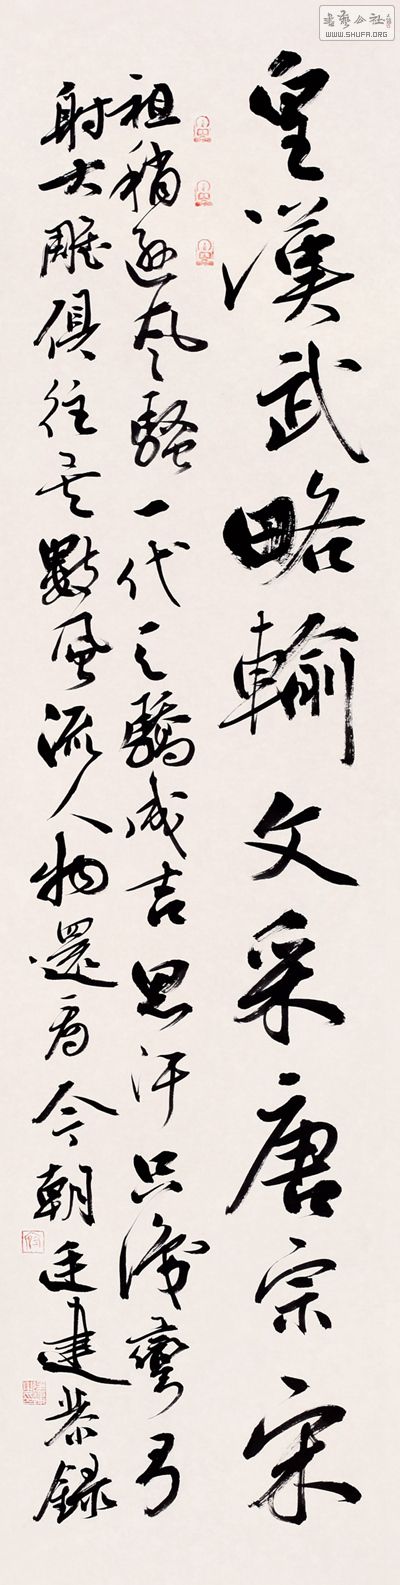 書藝公社
WWW.SHUFA.ORG
皇漢武略輸文采唐宗宋
祖稍遜風騷一代天驕成吉思汗只識彎弓
射大雕俱往矣數風流人物還看今朝建恭錄